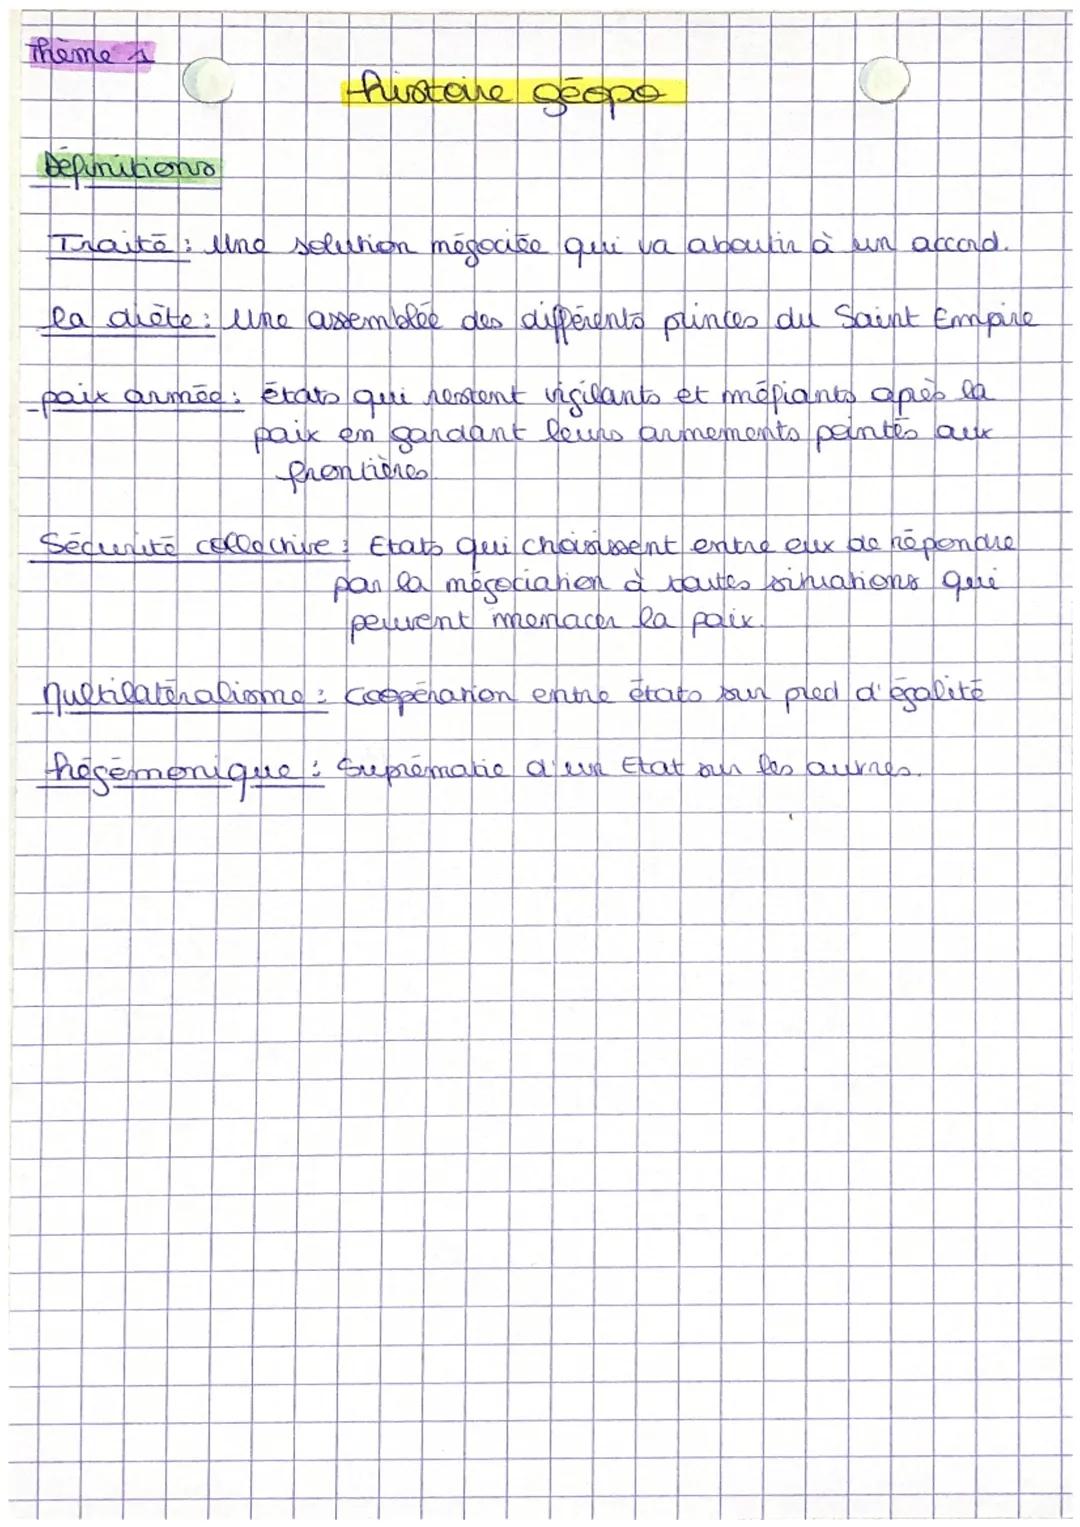 Thème 1
histoire géopo
Définitions
Traité : Une solution négociée qui va aboutir à un accord.
la diète : Une assemblée des différents princes du Saint Empire
paix armée : états qui restent vigilants et méfiants après la
paix en gardant leurs armements pointés aux
frontières.
Sécurité collective : Etats qui choisissent entre eux de répondre
par la négociation à toutes situations qui
peuvent menacer la paix.
Multilatéralisme : Coopération entre états sur pied d'égalité
hégémonique : Suprématie d'un Etat sur les autres.